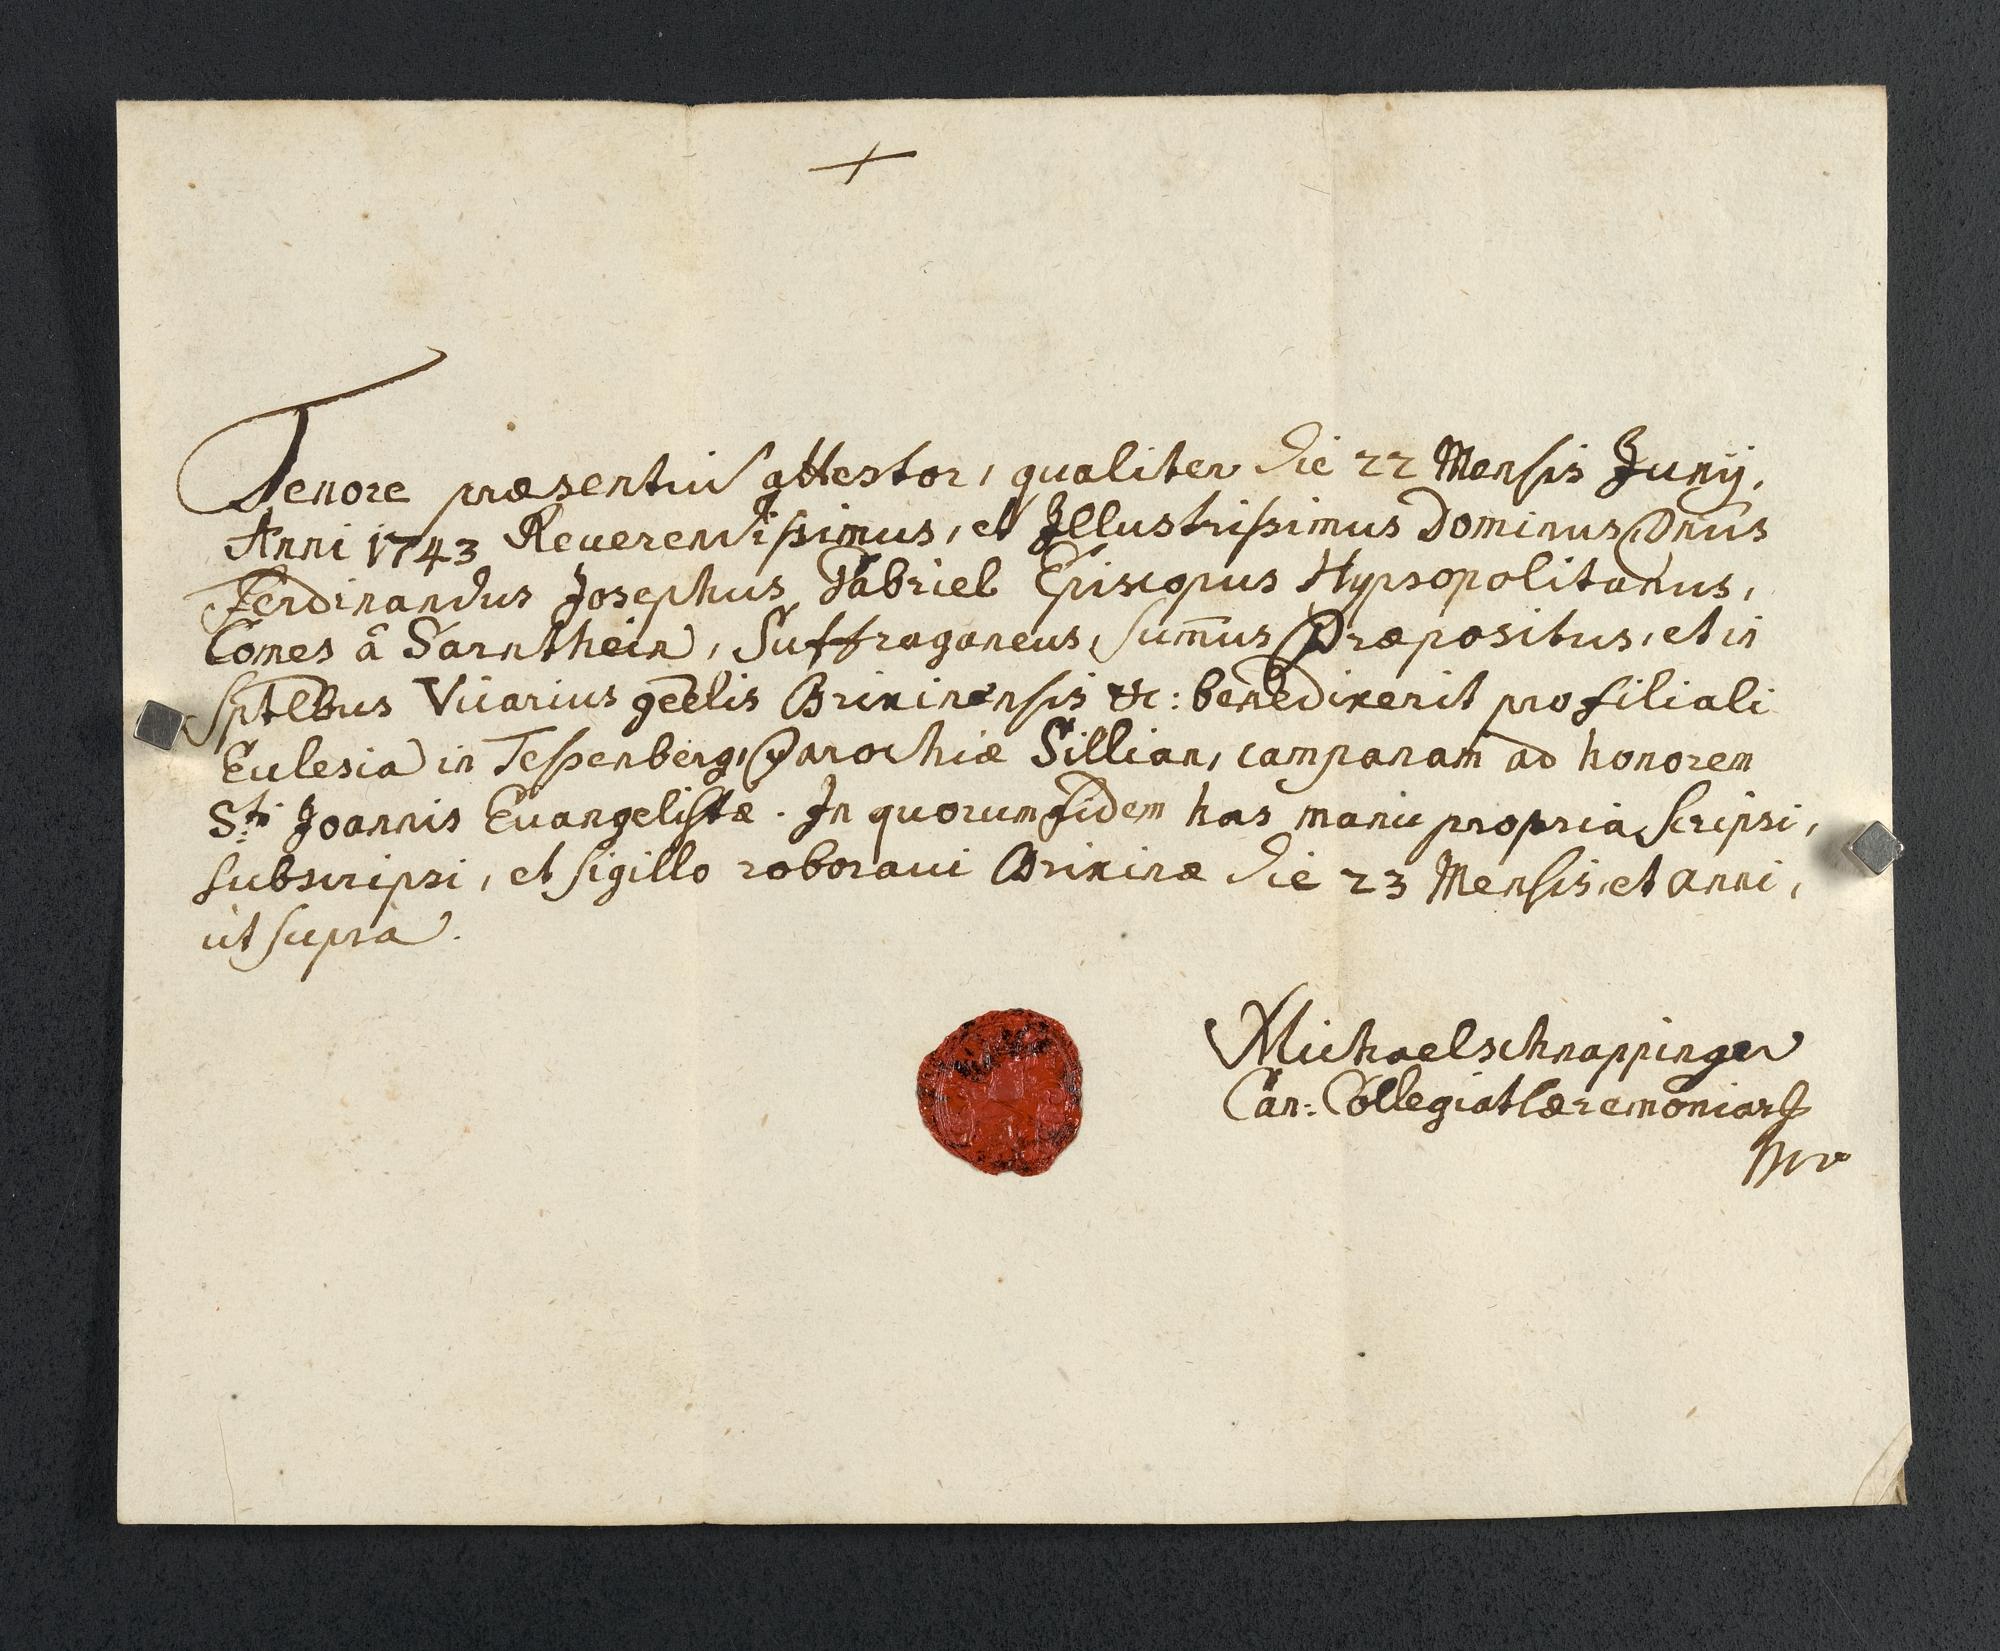 +
Tenore præsentiu attestor, qualiter die 22 Mensis Junij,
Anni 1743 Reuerendissimus, et Jllustrissimus Dominus Dnus
Ferdinandus Josephus Gabriel Episcopus Hypsopolitanus,
Comes â Sarnthein, Suffraganeus, sum̄us Præpositus, et in
sptlbus Vicarius gēēlis Brixinensis &c: benedixerit pro filiali
Ecclesia in Tessenberg, Parochiæ Sillian, campanam ad honorem
S:ti Joannis Euangelistæ. In quorum fidem has manu propria scripsi,
subscripsi, et sigillo roboraui Brixinæ die 23 Mensis, et anni,
ut supra.
Michael schnappinger
Can: Collegiat Cæremoniar